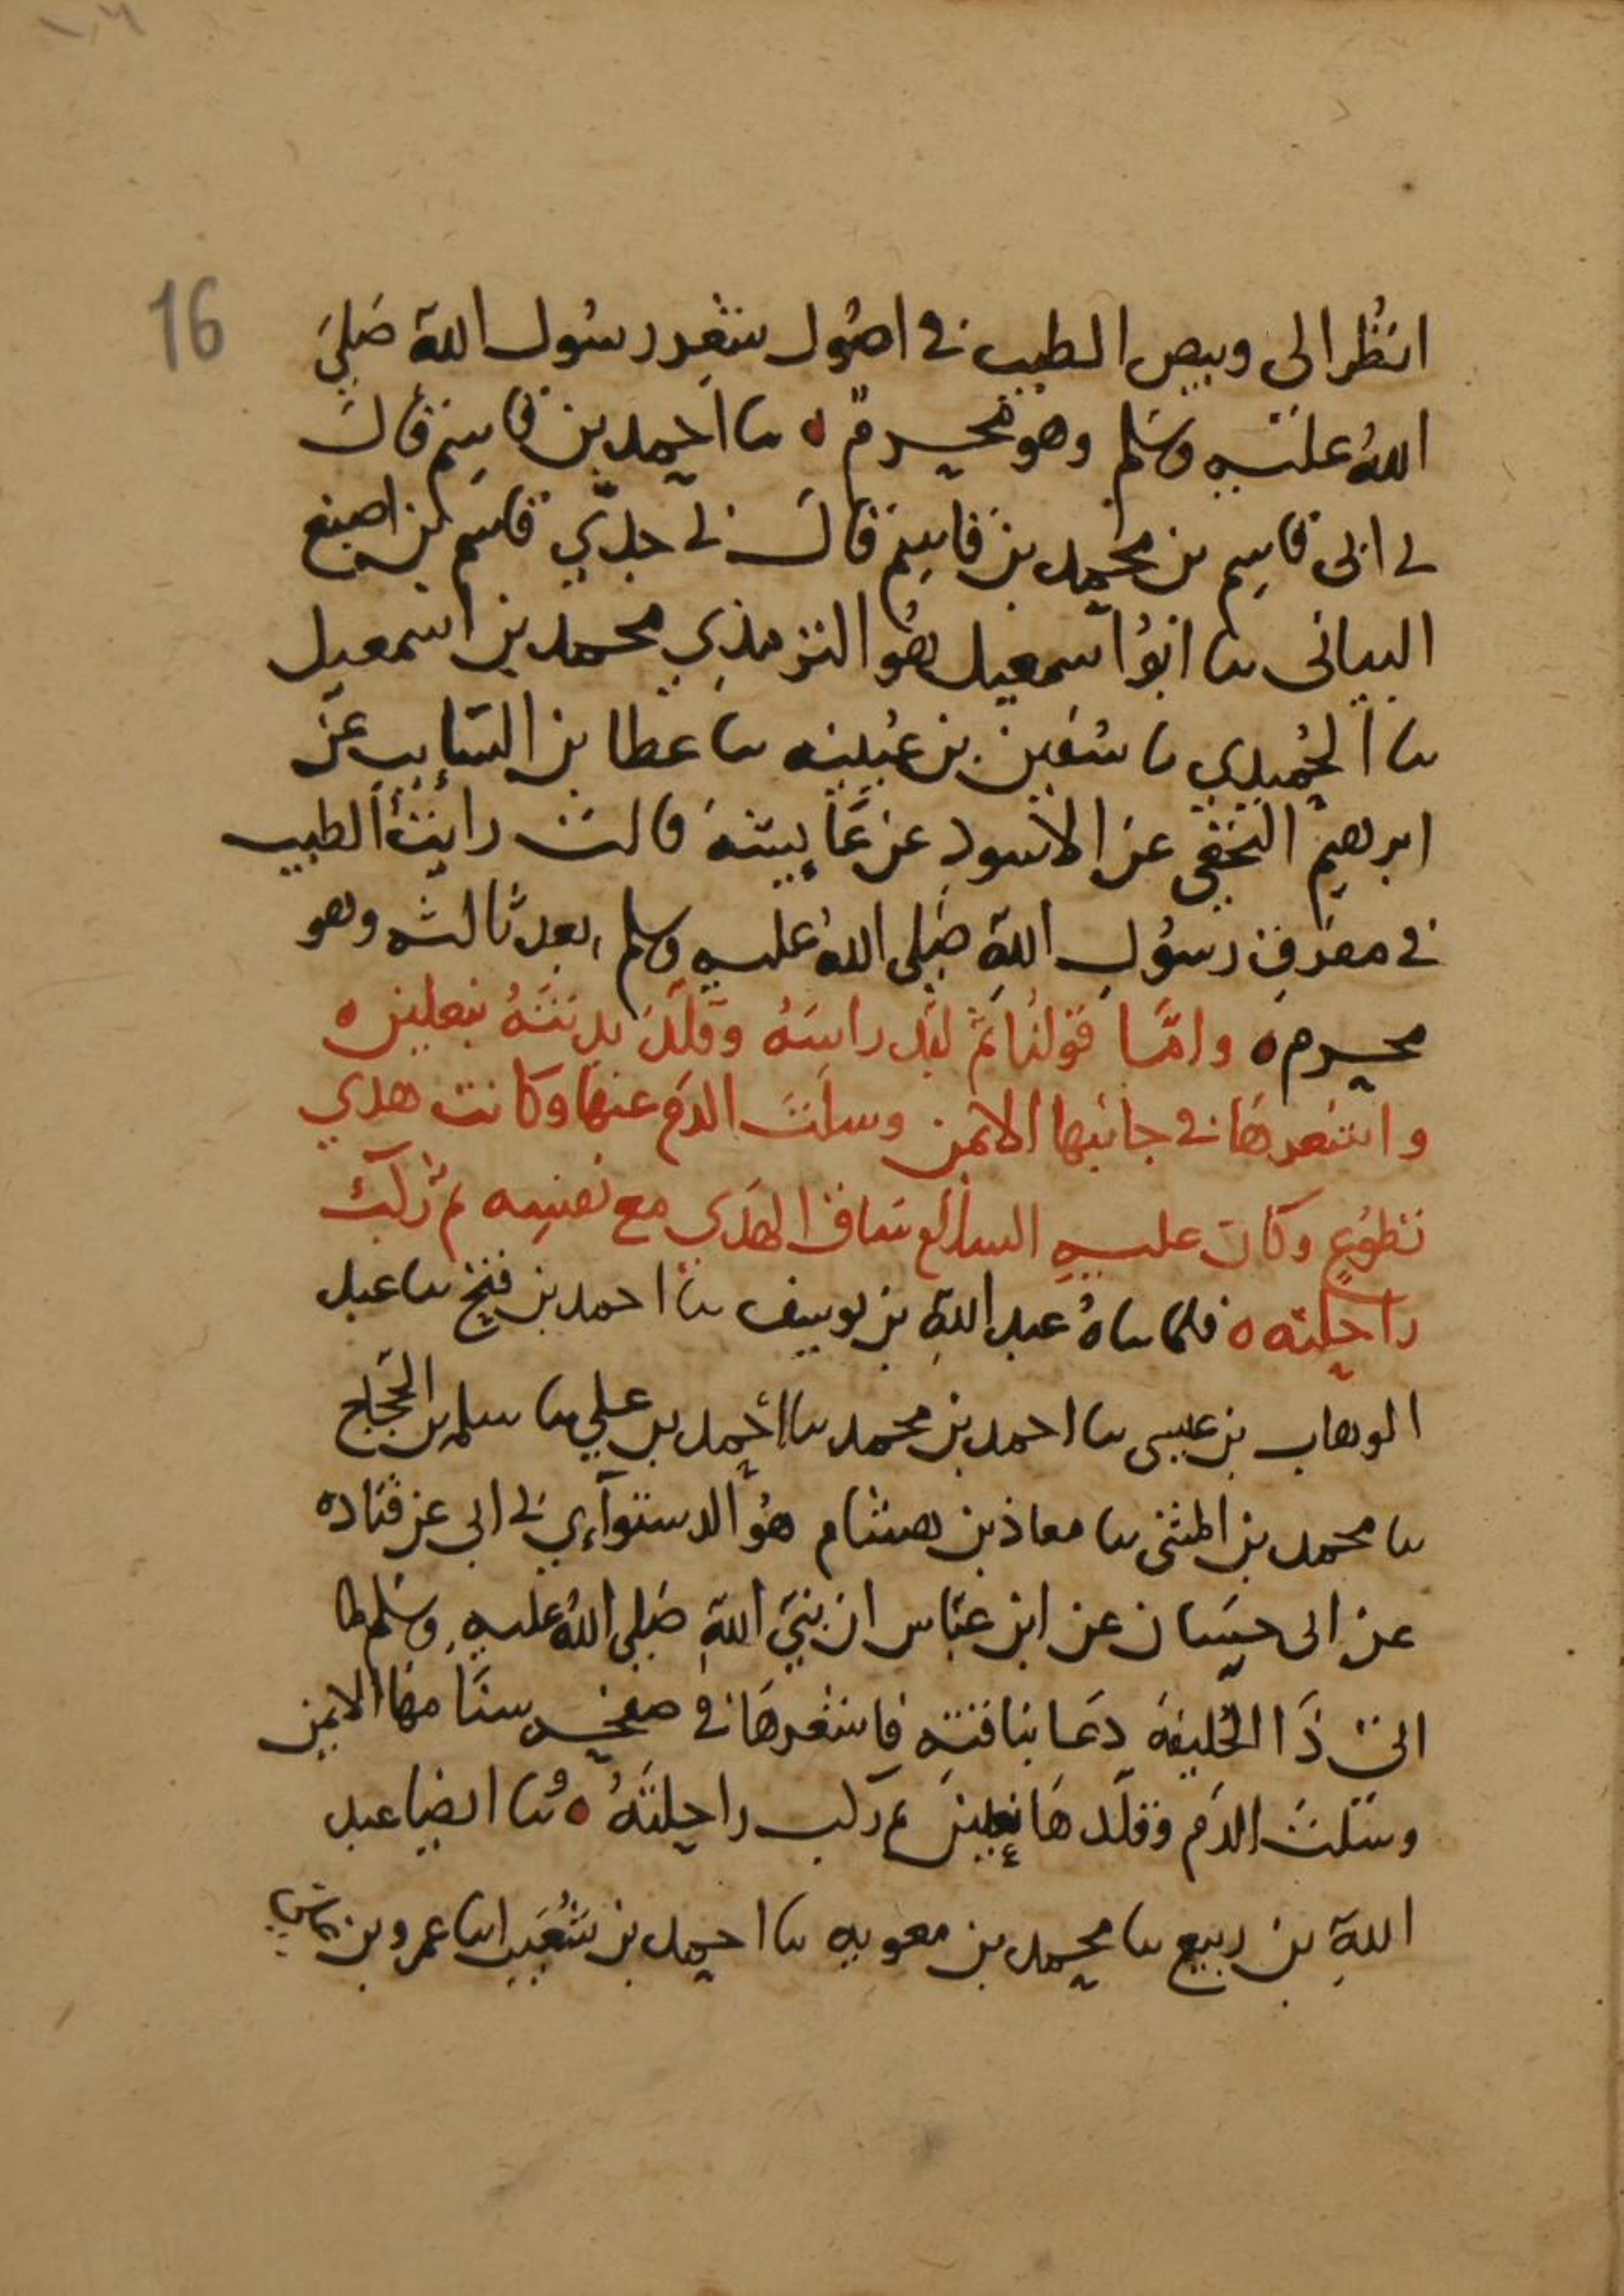 16
انظر الى وبيص الطيب في اصول شعر رسول الله صلى
الله عليه وسلم وهو محرم ٥ نا احمد بن قاسم قال
ني ابى قاسم بن محمد بن قاسم قال ني جدي قاسم بن اصبغ
البيانى نا ابو اسمعيل هو الترمذي محمد بن اسمعيل
نا الحميدي نا سفين بن عيينه نا عطا بن السايب عن
ابرهيم النخعي عن الاسود عن عايشة قالت رايت الطيب
في مفرق رسول الله صلى الله عليه وسلم بعد ثالثه وهو
محرم ٥ واما قولنا ثم لبد راسه وقلد بدنته بنعلين ٥
واشعرها في جانبها الايمن وسلت الدم عنها وكانت هدي
تطوع وكان عليه السلام ساق الهدي مع نفسه ثم ركب
راحلته ٥ فلما ناه عبد الله بن يوسف نا احمد بن فتح نا عبد
الوهاب بن عيسى نا احمد بن محمد نا احمد بن علي نا مسلم بن الحجاج
نا محمد بن المثنى نا معاذ بن هشام هو الدستواءي ني ابي عن قتاده
عن ابى حسان عن ابن عباس ان نبي الله صلى الله عليه وسلم لما
اتى ذا الحليفه دعا بناقته فاشعرها في صفحه سنامها الايمن
وسلت الدم وقلدها نعلين ثم ركب راحلته ٥ ونا ايضا عبد
الله بن ربيع نا محمد بن معويه نا احمد بن شعيب انا عمرو بن